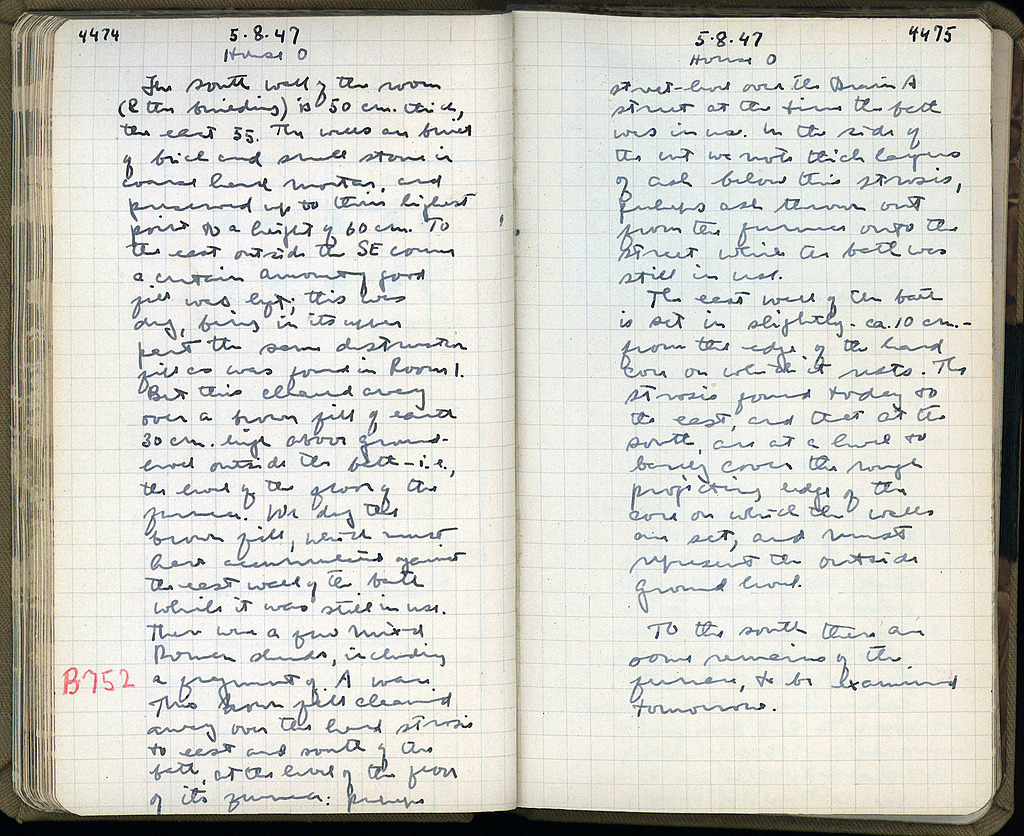 4474
5·8·47
House O
The south wall of the room
(& the building) is 50 cm. thick,
the east 55. The walls are built
of brick and small stone in
coarse hard mortar, and
preserved up to their highest
point to a height of 60 cm. To
the east outside the SE corner
a certain amount of good
fill was left; this was
dug, being in its upper
part the same destruction
fill as was found in Room 1.
But this cleaned away
over a brown fill of earth
30 cm. high above ground-
level outside the bath - i.e.,
the level of the floor of the
furnace. We dug this
brown fill, which must
have accumulated against
the east wall of the bath
while it was still in use.
There were a few mixed
Roman sherds, including
B752
a fragment of A ware.
This brown fill cleaned
away over the hard strosis
to east and south of the
bath, at the level of the floor
of its furnace: perhaps
4475
5·8·47
House O
street-level over the Drain A
street at the time the bath
was in use. In the side of
the cut we note thick layers
of ash below this strosis,
perhaps ash thrown out
from the furnace onto the
street while the bath was
still in use.
The east wall of the bath
is set in slightly - ca. 10 cm. -
from the edge of the hard
core on which it rests. The
strosis found today to
the east, and that at the
south, are at a level to
barely cover the rough
projecting edge of the
core on which the walls
are set, and must
represent the outside
ground level.
To the south there are
some remains of the
furnace, to be examined
tomorrow.